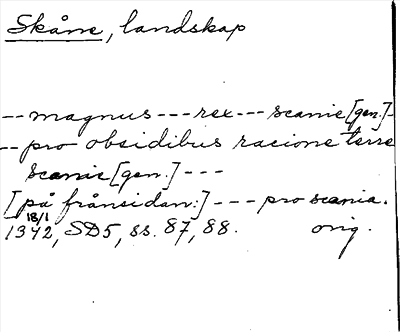 Skåne, landskap
-- magnus --- rex --- scanie [gen.] -
-- pro obsidibus racione terre
scanie [gen.] ---
[på frånsidan:] --- pro scania.
18/1
1342, SD5, ss. 87, 88. orig.